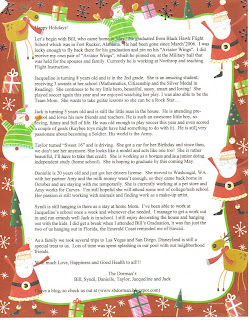 Happy Holidays!
Let's begin with Bill, who came home after he graduated from Black Hawk Flight
School which was in Fort Rucker, Alabama. He had been gone since March 2006. I was
lucky enough to fly back there for his graduation and pin on his "Aviator Wings". I did
receive my own pair of "Aviator Wings", which he pinned on, at the Military ball that
was held for the spouses and family. Currently he is working at Northrop and teaching
Flight Instruction.
Jacqueline is turning 8 years old and is in the 2nd grade. She is an amazing student,
receiving 3 awards at her school (Mathematics, Citizenship and the Silver Medal in
Reading). She continues to be my little hero, beautiful, sassy, smart and loving! She
played soccer again this year and we enjoyed watching her play. I was also able to be the
Team Mom. She wants to take guitar lessons so she can be a Rock Star...
Jack is turning 5 years old and is still the little man in the house. He is attending pre-
school and loves his new friends and teachers. He is such an awesome little boy, so
loving, funny and full of life. He was old enough to play soccer this year and even scored
a couple of goals (Kaylee you might have had something to do with it). He is still very
passionate about becoming a Soldier. His world is the Army.
Taylor turned "Sweet 16" and is driving. She got a car for her Birthday and since then,
we don't see her anymore. She looks like a model and acts like one too! She is rather
beautiful, I'll have to take that credit. She is working as a hostess and is a junior doing
independent study (home school). She is hoping to graduate by this coming May.
Danielle is 20 years old and just got her drivers license. She moved to Wadougal, WA
with her partner Amy and the milk money wasn't enough, so they came back home in
October and are staying with me temporarily. She is currently working at a pet store and
Amy works for Curves. I'm still hopeful she will attend some sort of college/tech school.
Her passion is still working with animals and finding work as a make-up artist.
Syndi is still hanging in there as a stay at home Mom. I've been able to work at
Jacqueline's school once a week and whenever else needed. I manage to get a work out
in and run errands with Jack is in school. I still enjoy decorating the house and hanging
out with the kids. I did get a break when I attended Bill's Graduation, it was fun just the
two of us hanging out in Florida, the Emerald Coast reminded me of Hawaii.
As a family we took several trips to Las Vegas and San Diego. Disneyland is still a
special treat to us. Lots of time was spent splashing in our pool with our neighborhood
friends.
much Love, Happiness and Good Health to all!!
The Dorman's
Bill, Syndi, Danielle, Taylor, Jacqueline and Jack
a blog, so check us out at